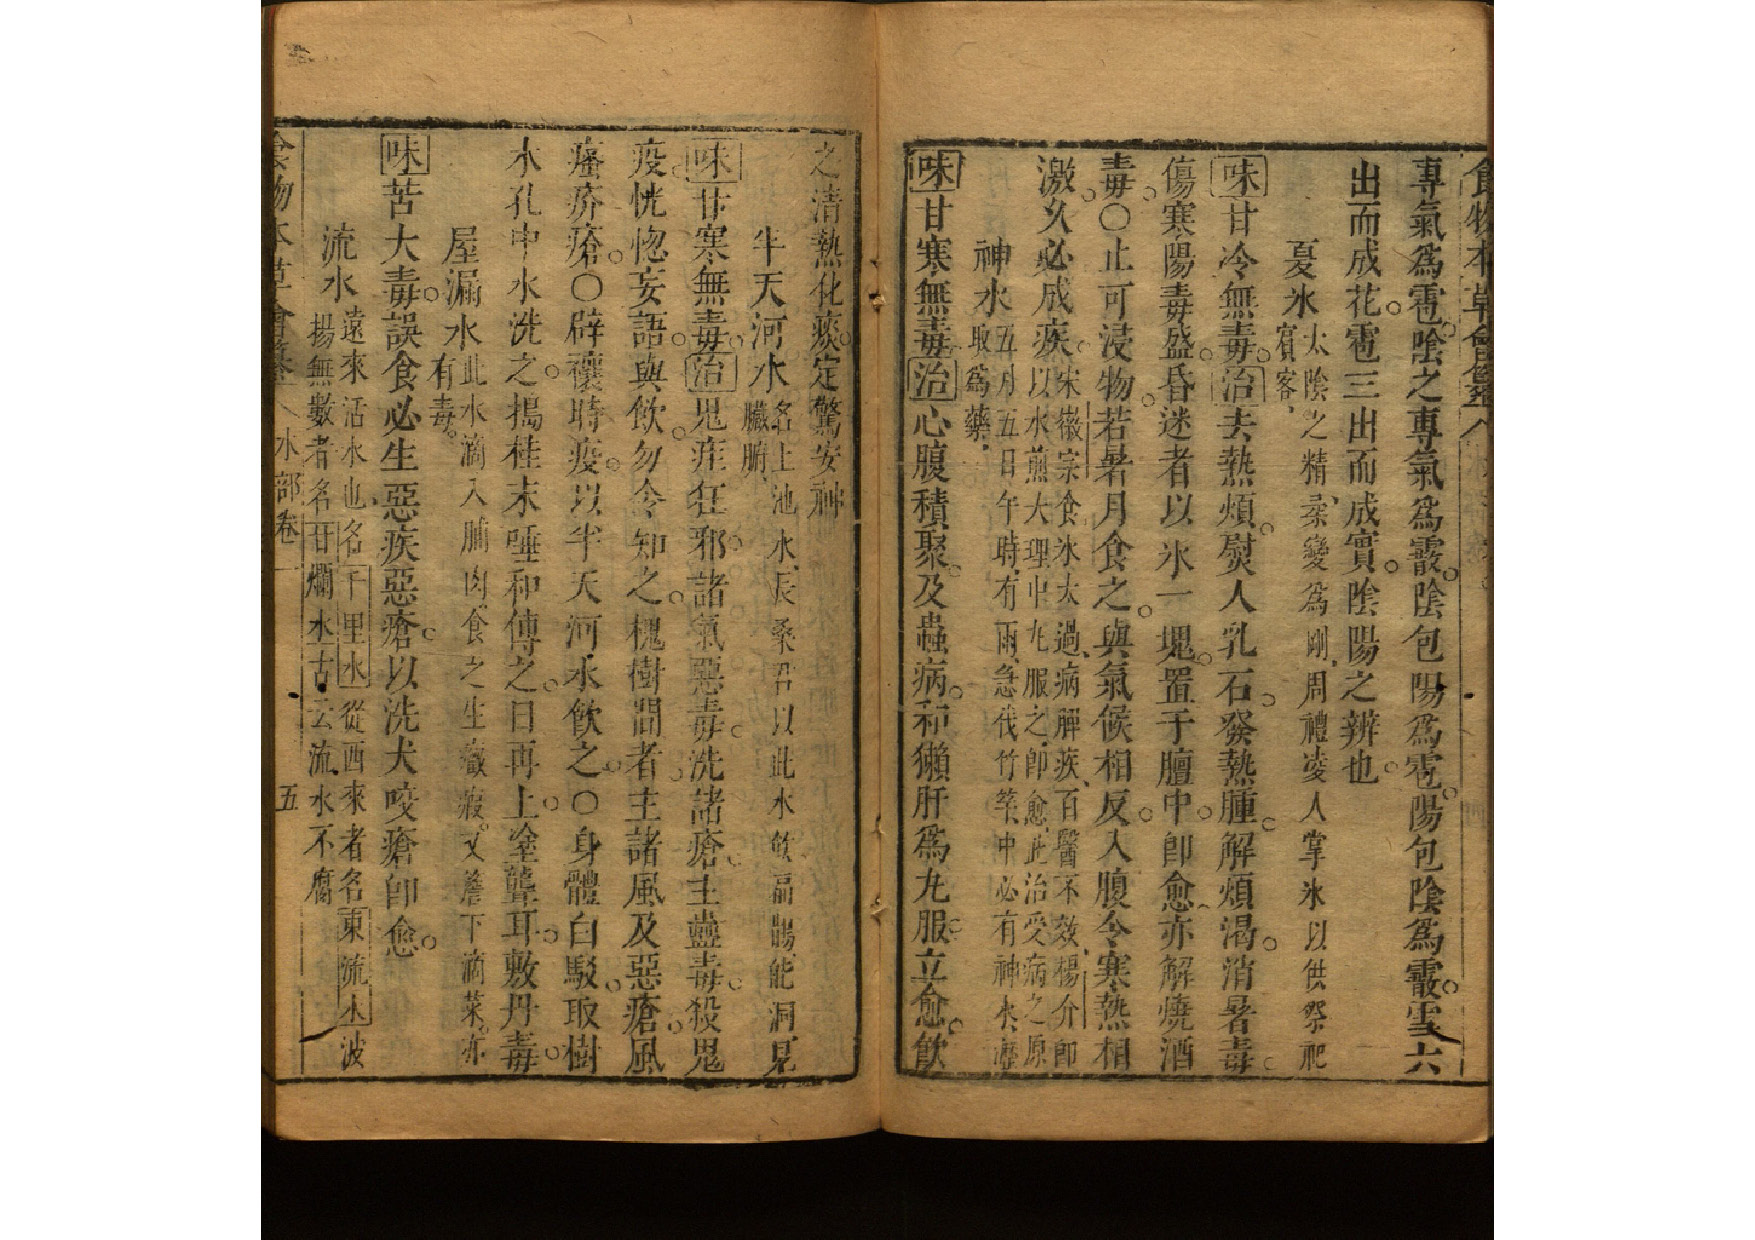 食物本草會纂
專氣爲雹。陰之專氣爲霰。陰包陽爲雹。陽包陰爲霰。雪六
出而成花。雹三出而成實。陰陽之辨也。
夏氷 太陰之精、柔變爲剛、周禮凌人掌氷以供祭祀
賓客、
味甘冷無毒。治去熱煩。熨人乳石。發熱腫。解煩渴。消暑毒。
傷寒陽毒盛。昏迷者以氷一塊。置于膻中。卽愈。亦解燒酒
毒。○止可浸物。若暑月食之。與氣候相反。入腹令寒熱相
激。久必成疾。宋徽宗食氷太過、病脾疾、百醫不效、楊介卽
以氷煎大理中丸服之、卽愈、此治受病之原
神水 五月五日午時、有雨、急伐竹竿、中必有神水、瀝
取爲藥、
味甘寒無毒治心腹積聚。及蟲病。和獺肝爲丸服。立愈。飲
之清熱化痰。定驚安神
半天河水 名上池水、辰桑君以此水飲扁鵲、能洞見
臟腑、
味甘寒無毒。治鬼疰狂邪。諸氣惡毒。洗諸瘡。主蠱毒。殺鬼
疫恍惚妄語。與飲。勿令知之。槐樹間者。主諸風及惡瘡。風
瘙疥瘡。○辟禳時疫。以半天河水飲之。○身體白駁。取樹
木孔中水洗之。搗桂末唾和傅之。日再上。塗聾耳。敷丹毒。
屋漏水 此水滴入脯肉、食之生癥瘕。又簷下滴菜。亦
有毒。
味苦大毒。誤食必生惡疾惡瘡。以洗犬咬瘡卽愈。
流水 遠來活水也、名千里水、從西來者名東流水、波
揚無數者名甘爛水、古云流水不腐
食物本草會纂 水部卷一 五